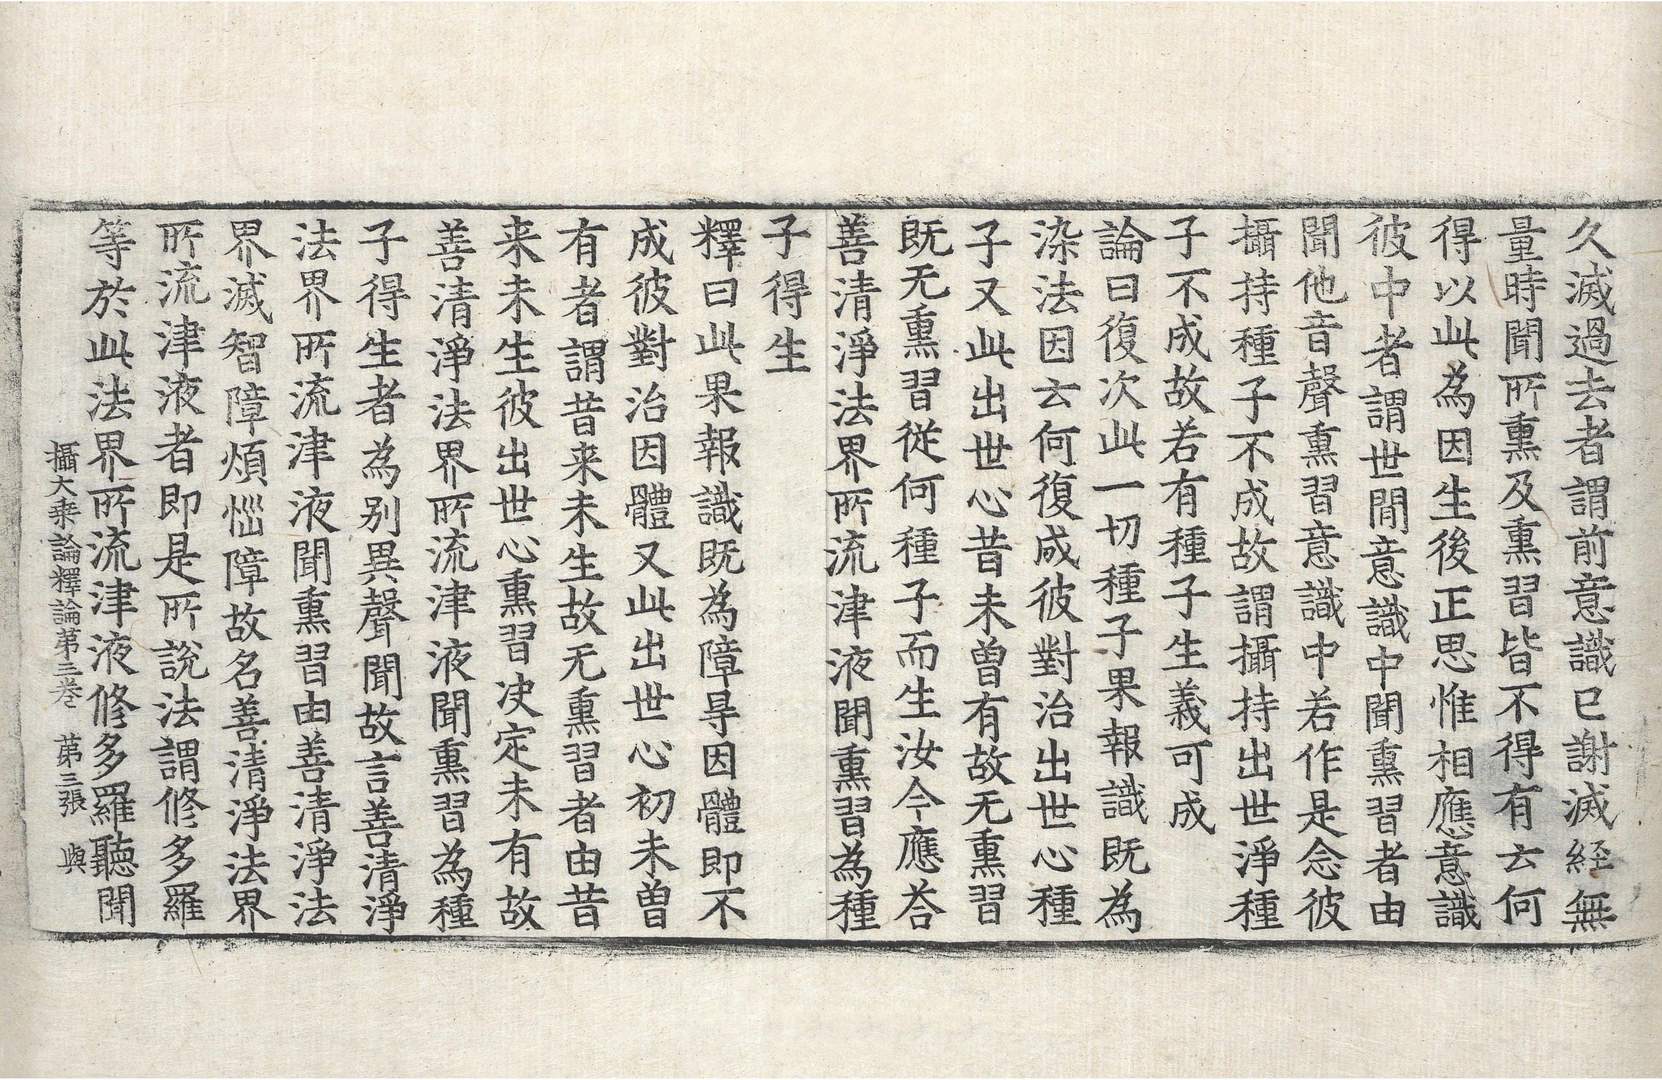 久滅過去者謂前意識已謝滅經無
量時聞所熏及熏習皆不得有云何
得以此為因生後正思惟相應意識
彼中者謂世閒意識中聞熏習者由
聞他音聲熏習意識中若作是念彼
攝持種子不成故謂攝持出世淨種
子不成故若有種子生義可成
論曰復次此一切種子果報識既為
染法因云何復成彼對治出世心種
子又此出世心昔未曾有故无熏習
既无熏習從何種子而生汝今應荅
善清淨法界所流津液聞熏習為種
子得生
釋曰此果報識既為障㝵因體即不
成彼對治因體又此出世心初未曾
有者謂昔来未生故无熏習者由昔
来未生彼出世心熏習决定未有故
善清淨法界所流津液聞熏習為種
子得生者為別異聲聞故言善清淨
法界所流津液聞熏習由善清淨法
界滅智障煩惱障故名善清淨法界
所流津液者即是所說法謂修多羅
等於此法界所流津液修多羅聽聞
攝大乗論釋論第三巻 第三張 與